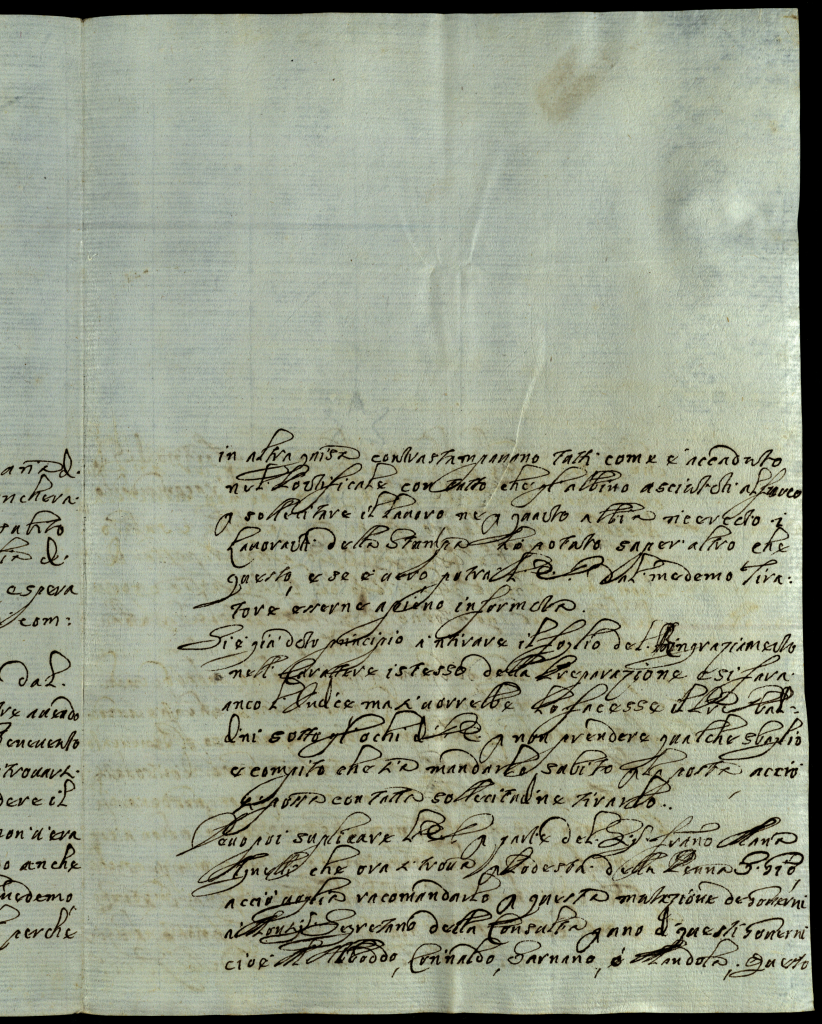 ana d.
nchera
subito
tia d.
e espera
com:
dal.
re avendo
Benevento
trovarz.
dere il
non v'era
o anche
medemo
perché
in altra guisa contrastampavano tutti come è accaduto
nel Pontificale con tutto che gl'abbino asciutati al fuoco
p sollecitare il lavoro ne p quanto abbia ricercato i
Lavoranti della Stampa ho potuto saper altro che
questo, e se è vero potrà dal medemo Tira:
tore esserne apieno informata.
Si è già dato principio a tirare il foglio del Ringraziamento
nell Carattere istesso della Preparazione e si farà
anco l'Indice ma si vorrebbe lo facesse il Bal=
dini sotto gl'ochi di p non prendere qualche sbaglio
e compito che sia mandarlo subito p la posta acciò
si possa con tutta sollecitudine tirarlo.
Devo poi suplicare p parte del S.r Franc.o Maria
che ora si trova Podestà della Penna S. Gio,
acciò voglia racomandarlo p questa mutazione de Governi
a Mons.r Segretario della Consulta p uno di questi Governi
cioè Monte Alboddo, Corinaldo, Sarnano, ò Mandola, questo